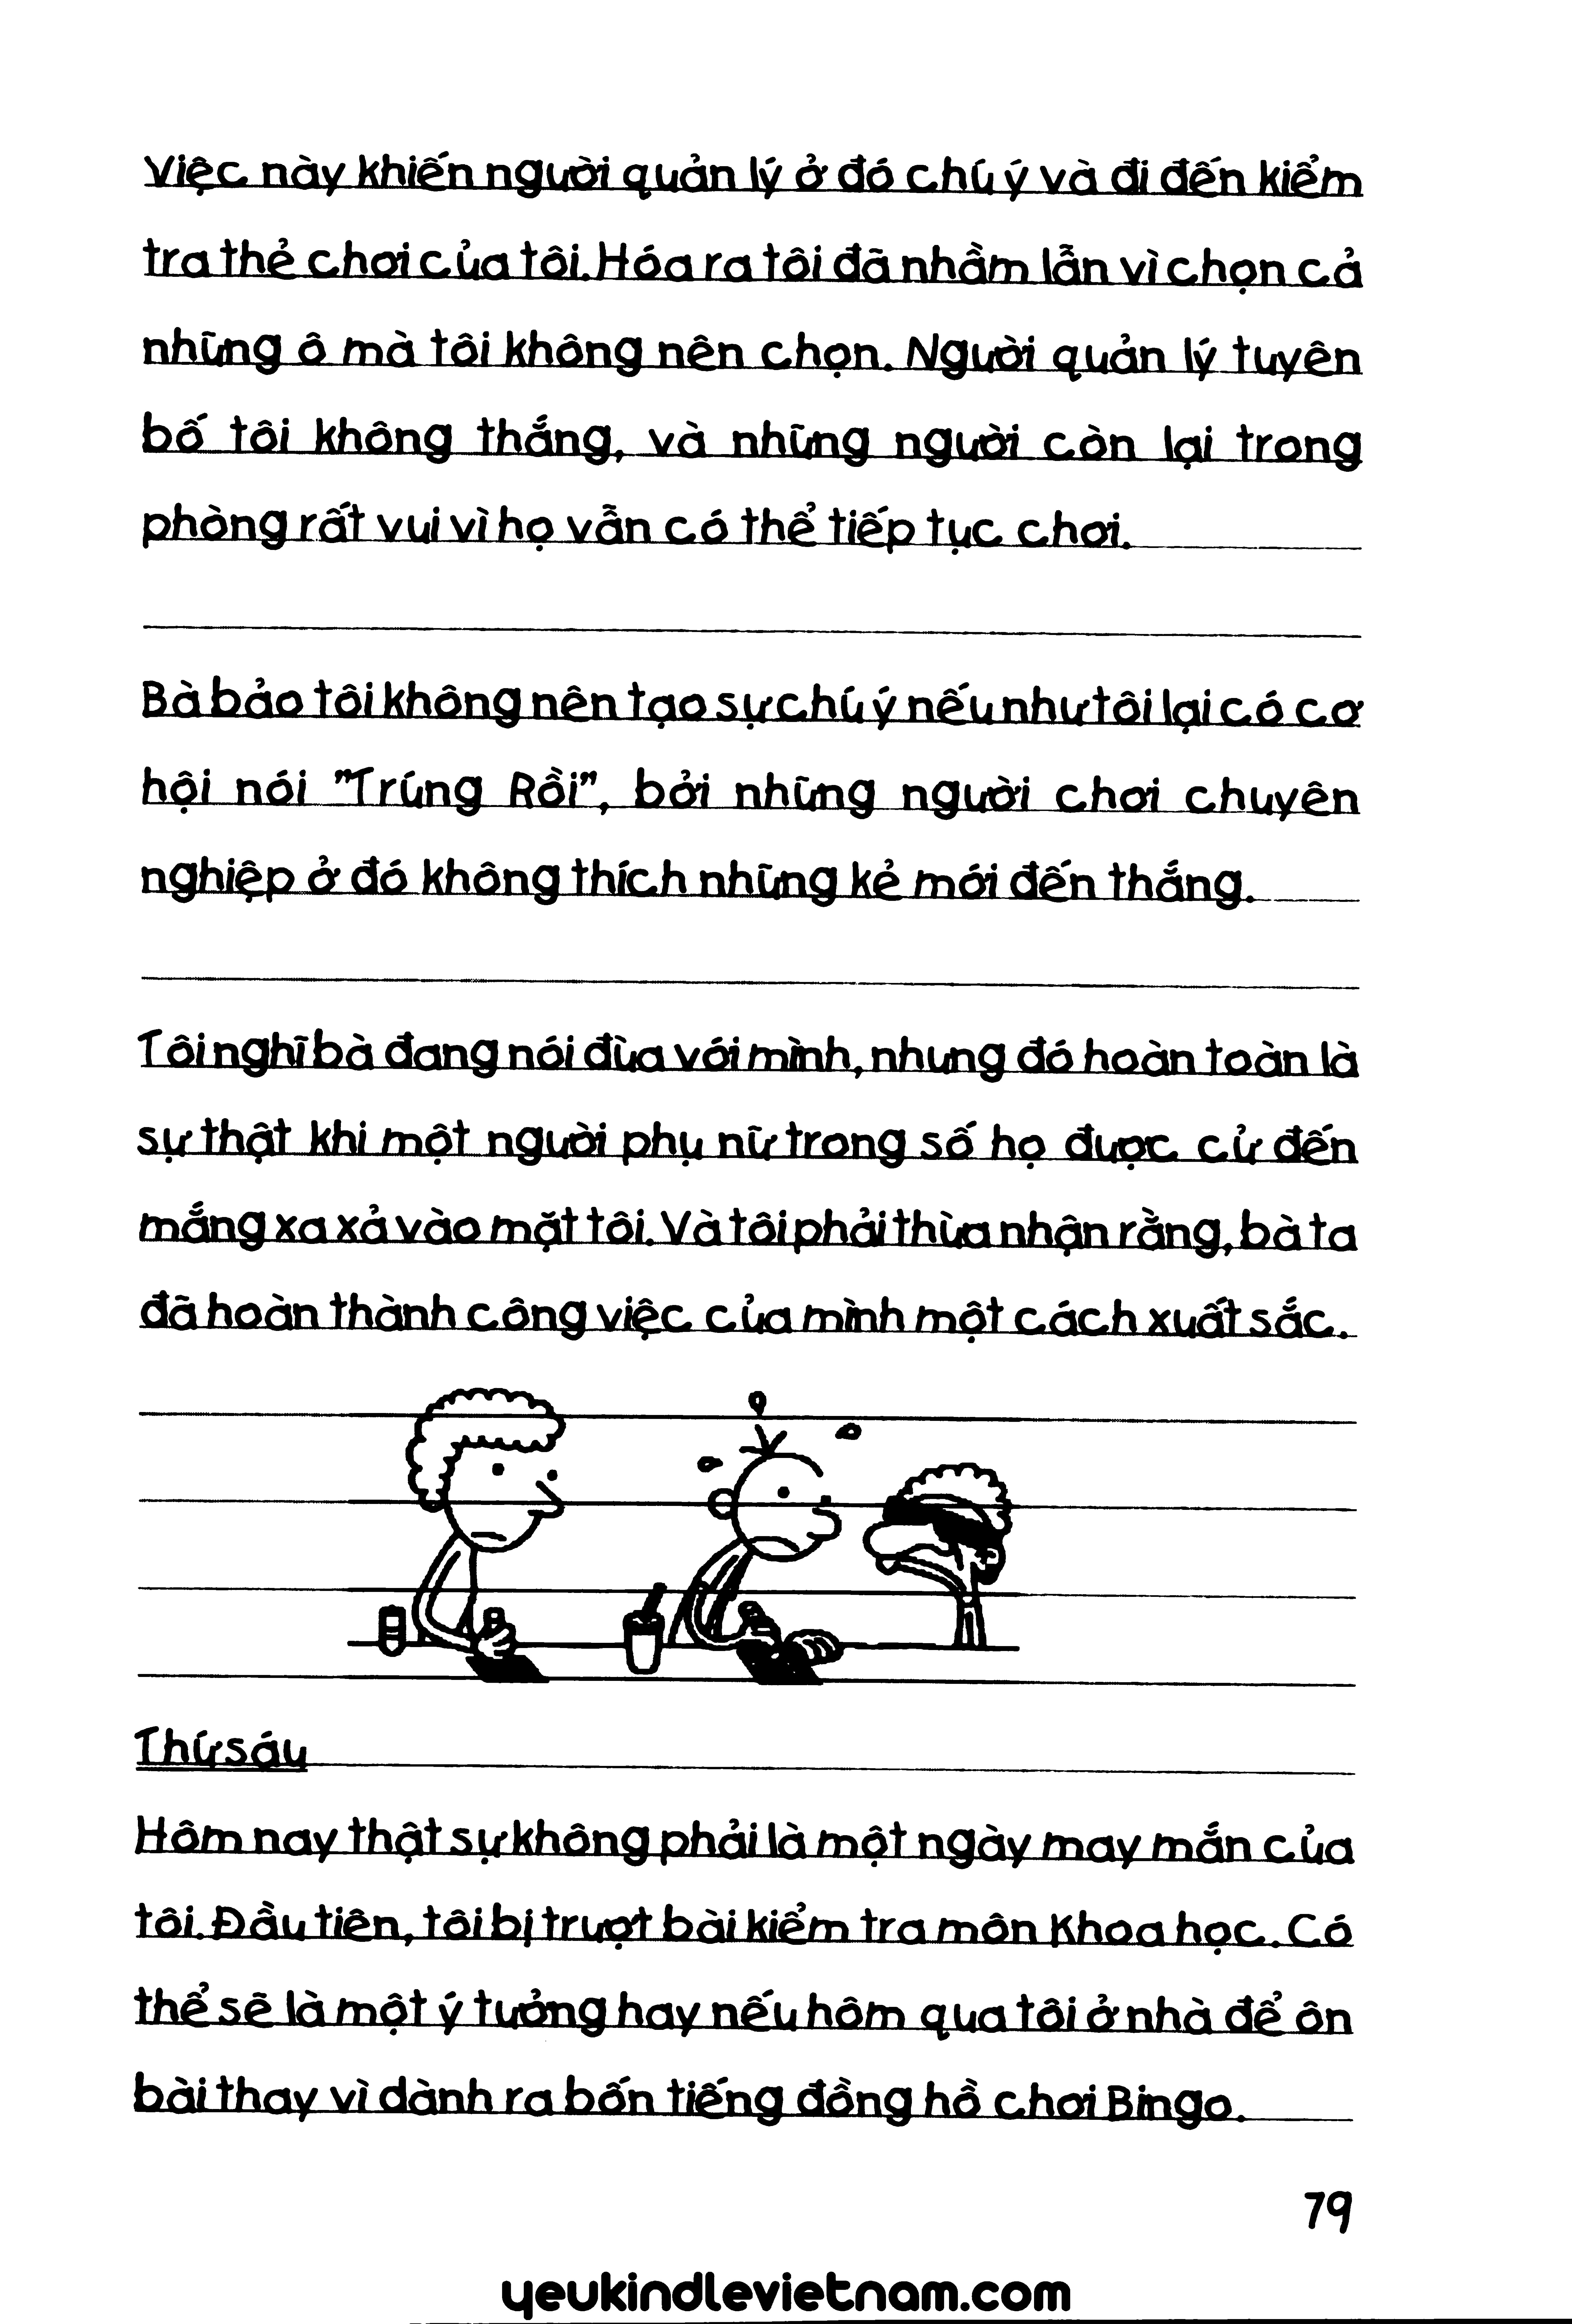 Việc này khiến người quản lý ở đó chú ý và đi đến kiểm
tra thẻ chơi của tôi. Hóa ra tôi đã nhầm lẫn vì chọn cả
những ô mà tôi không nên chọn. Người quản lý tuyên
bố tôi không thắng, và những người còn lại trong
phòng rất vui vì họ vẫn có thể tiếp tục chơi.
Bà bảo tôi không nên tạo sự chú ý nếu như tôi lại có cơ
hội nói "Trúng Rồi", bởi những người chơi chuyên
nghiệp ở đó không thích những kẻ mới đến thắng.
Tôi nghĩ bà đang nói đùa với mình, nhưng đó hoàn toàn là
sự thật khi một người phụ nữ trong số họ được cử đến
mắng xa xả vào mặt tôi. Và tôi phải thừa nhận rằng, bà ta
đã hoàn thành công việc của mình một cách xuất sắc.
Thứ sáu
Hôm nay thật sự không phải là một ngày may mắn của
tôi. Đầu tiên, tôi bị trượt bài kiểm tra môn Khoa học. Có
thể sẽ là một ý tưởng hay nếu hôm qua tôi ở nhà để ôn
bài thay vì dành ra bốn tiếng đồng hồ chơi Bingo.
79
yeukindlevietnam.com